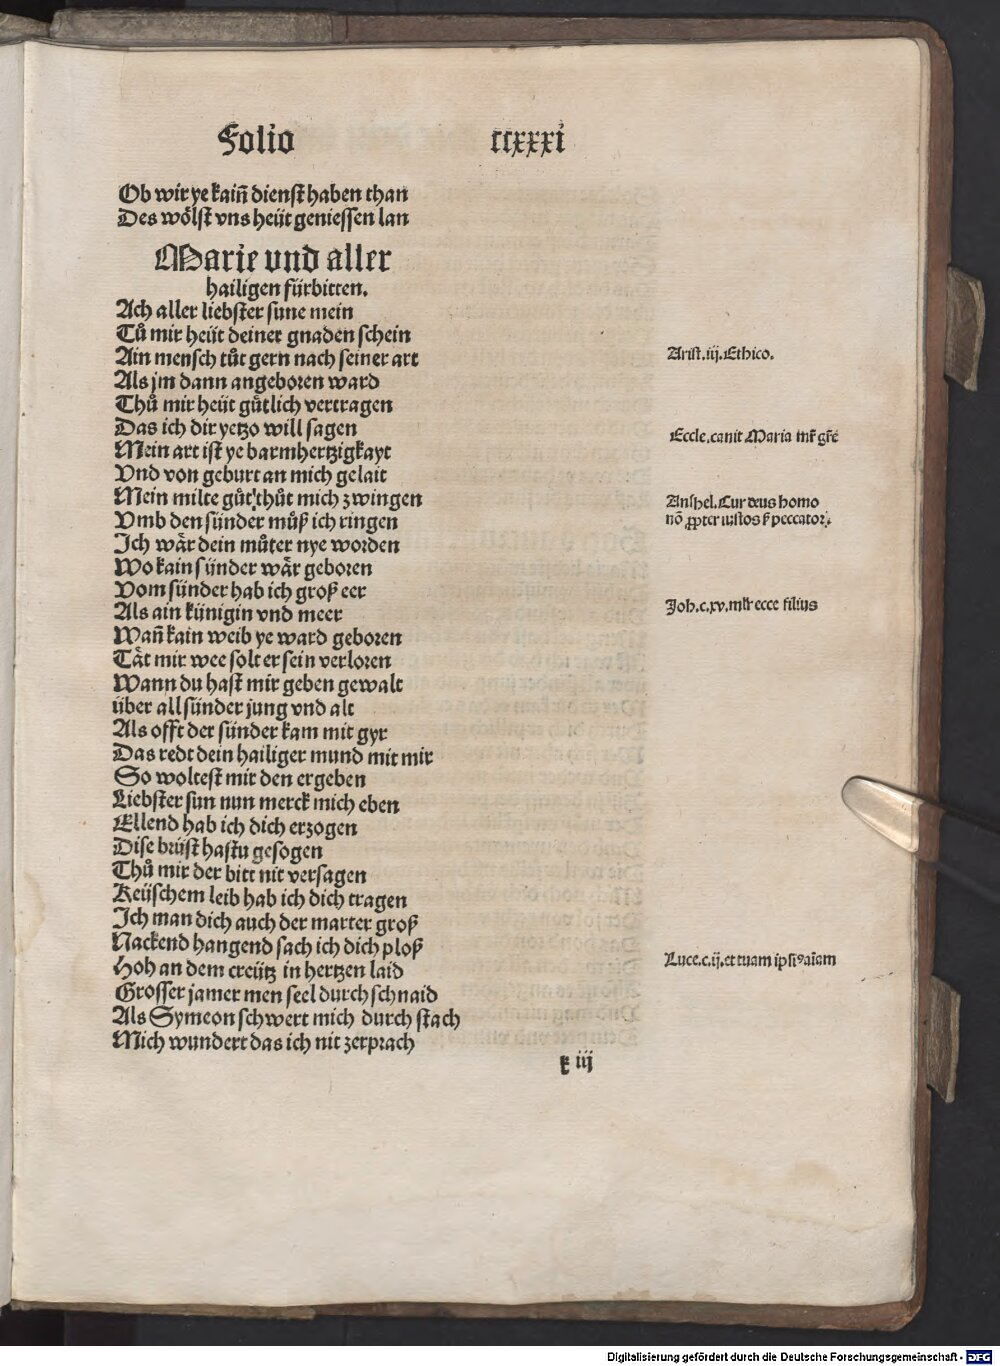 Folio ccxxxi
Ob wir ye kain̄ dienst haben than
Des wo̊lst vns heüt geniessen lan
Marie vnd aller
hailigen fürbitten.
Ach aller liebster sune mein
Tů mir heüt deiner gnaden schein
Ain mensch tůt gern nach seiner art
Arist. iij. Ethico.
Als jm dann angeboren ward
Thů mir heüt gůtlich vertragen
Das ich dir yetzo will sagen
Eccle. canit Maria mr̄ gr̄e
Mein art ist ye barmhertzigkayt
Vnd von geburt an mich gelait
Mein milte gůt thůt mich zwingen
Anshel. Cur deus homo
Vmb den sünder můß ich ringen
nō ꝓpter iustos s̄ peccatoꝝ.
Ich wär dein můter nye worden
Wo kain sünder wär geboren
Vom sünder hab ich groß eer
Als ain künigin vnd meer
Joh. c. xv. mlr̄ ecce filius
Wan̄ kain weib ye ward geboren
Tät mir wee solt er sein verloren
Wann du hast mir geben gewalt
über all sünder jung vnd alt
Als offt der sünder kam mit gyr
Das redt dein hailiger mund mit mir
So woltest mir den ergeben
Liebster sun nun merck mich eben
Ellend hab ich dich erzogen
Dise brüst hastu gesogen
Thů mir der bitt nit versagen
Keüschem leib hab ich dich tragen
Ich man dich auch der marter groß
Nackend hangend sach ich dich ploß
Hoh an dem creütz in hertzen laid
Luce. c. ij. et tuam ipsiꝰ aīam
Grosser jamer men seel durch schnaid
Als Symeon schwert mich durch stach
Mich wundert das ich nit zerprach
k iij
Digitalisierung gefördert durch die Deutsche Forschungsgemeinschaft - DFG